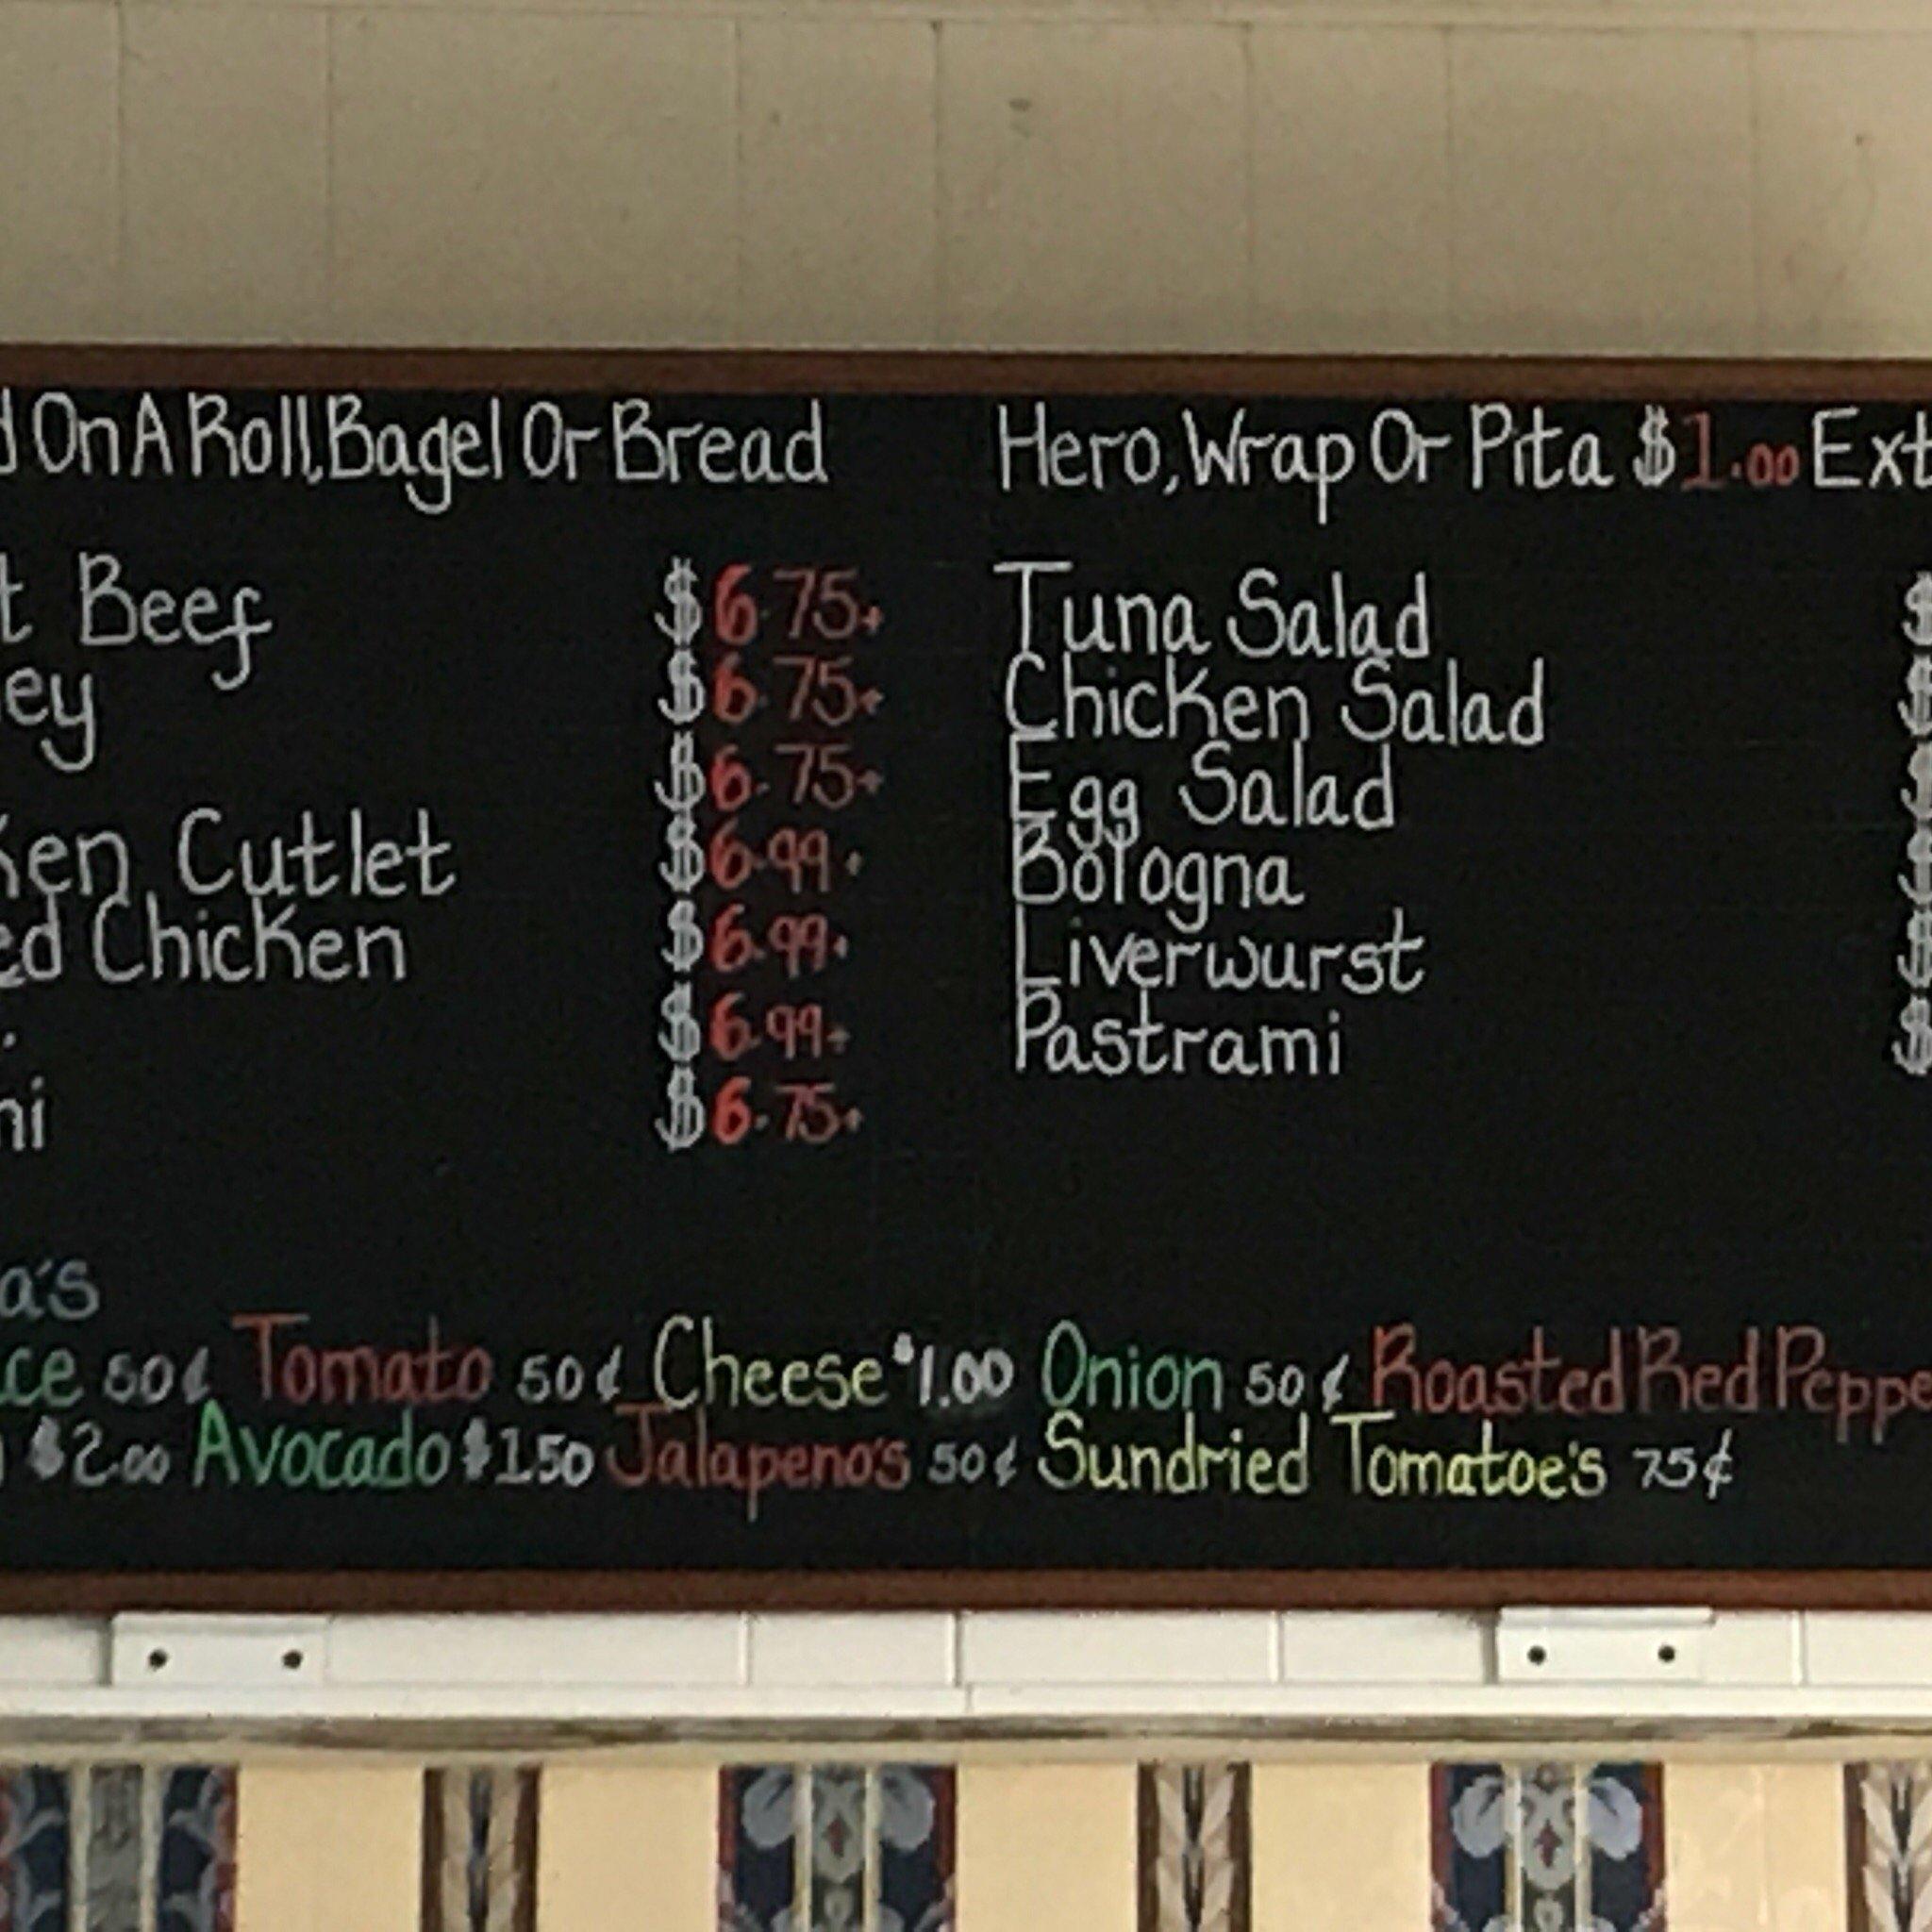 On A Roll, Bagel Or Bread
Hero, Wrap Or Pita $1.00
Beef $6.75+
$6.75+
$6.75+
Cutlet $6.99+
Chicken $6.99+
$6.99+
$6.75+
Tuna Salad $
Chicken Salad $
Egg Salad $
Bologna $
Liverwurst $
Pastrami $
50¢ Tomato 50¢ Cheese $1.00 Onion 50¢ Roasted Red
$2.00 Avocado $1.50 Jalapeno's 50¢ Sundried Tomatoe's 75¢